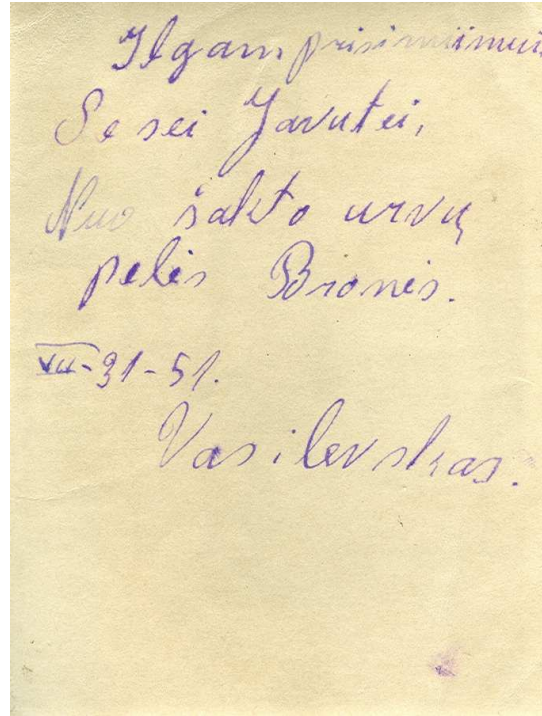 Ilgam prisiminimui
Sesei Javutei,
Nuo šakto urvų
pelės Bronės.
VII-31-51.
Vasilevskas.